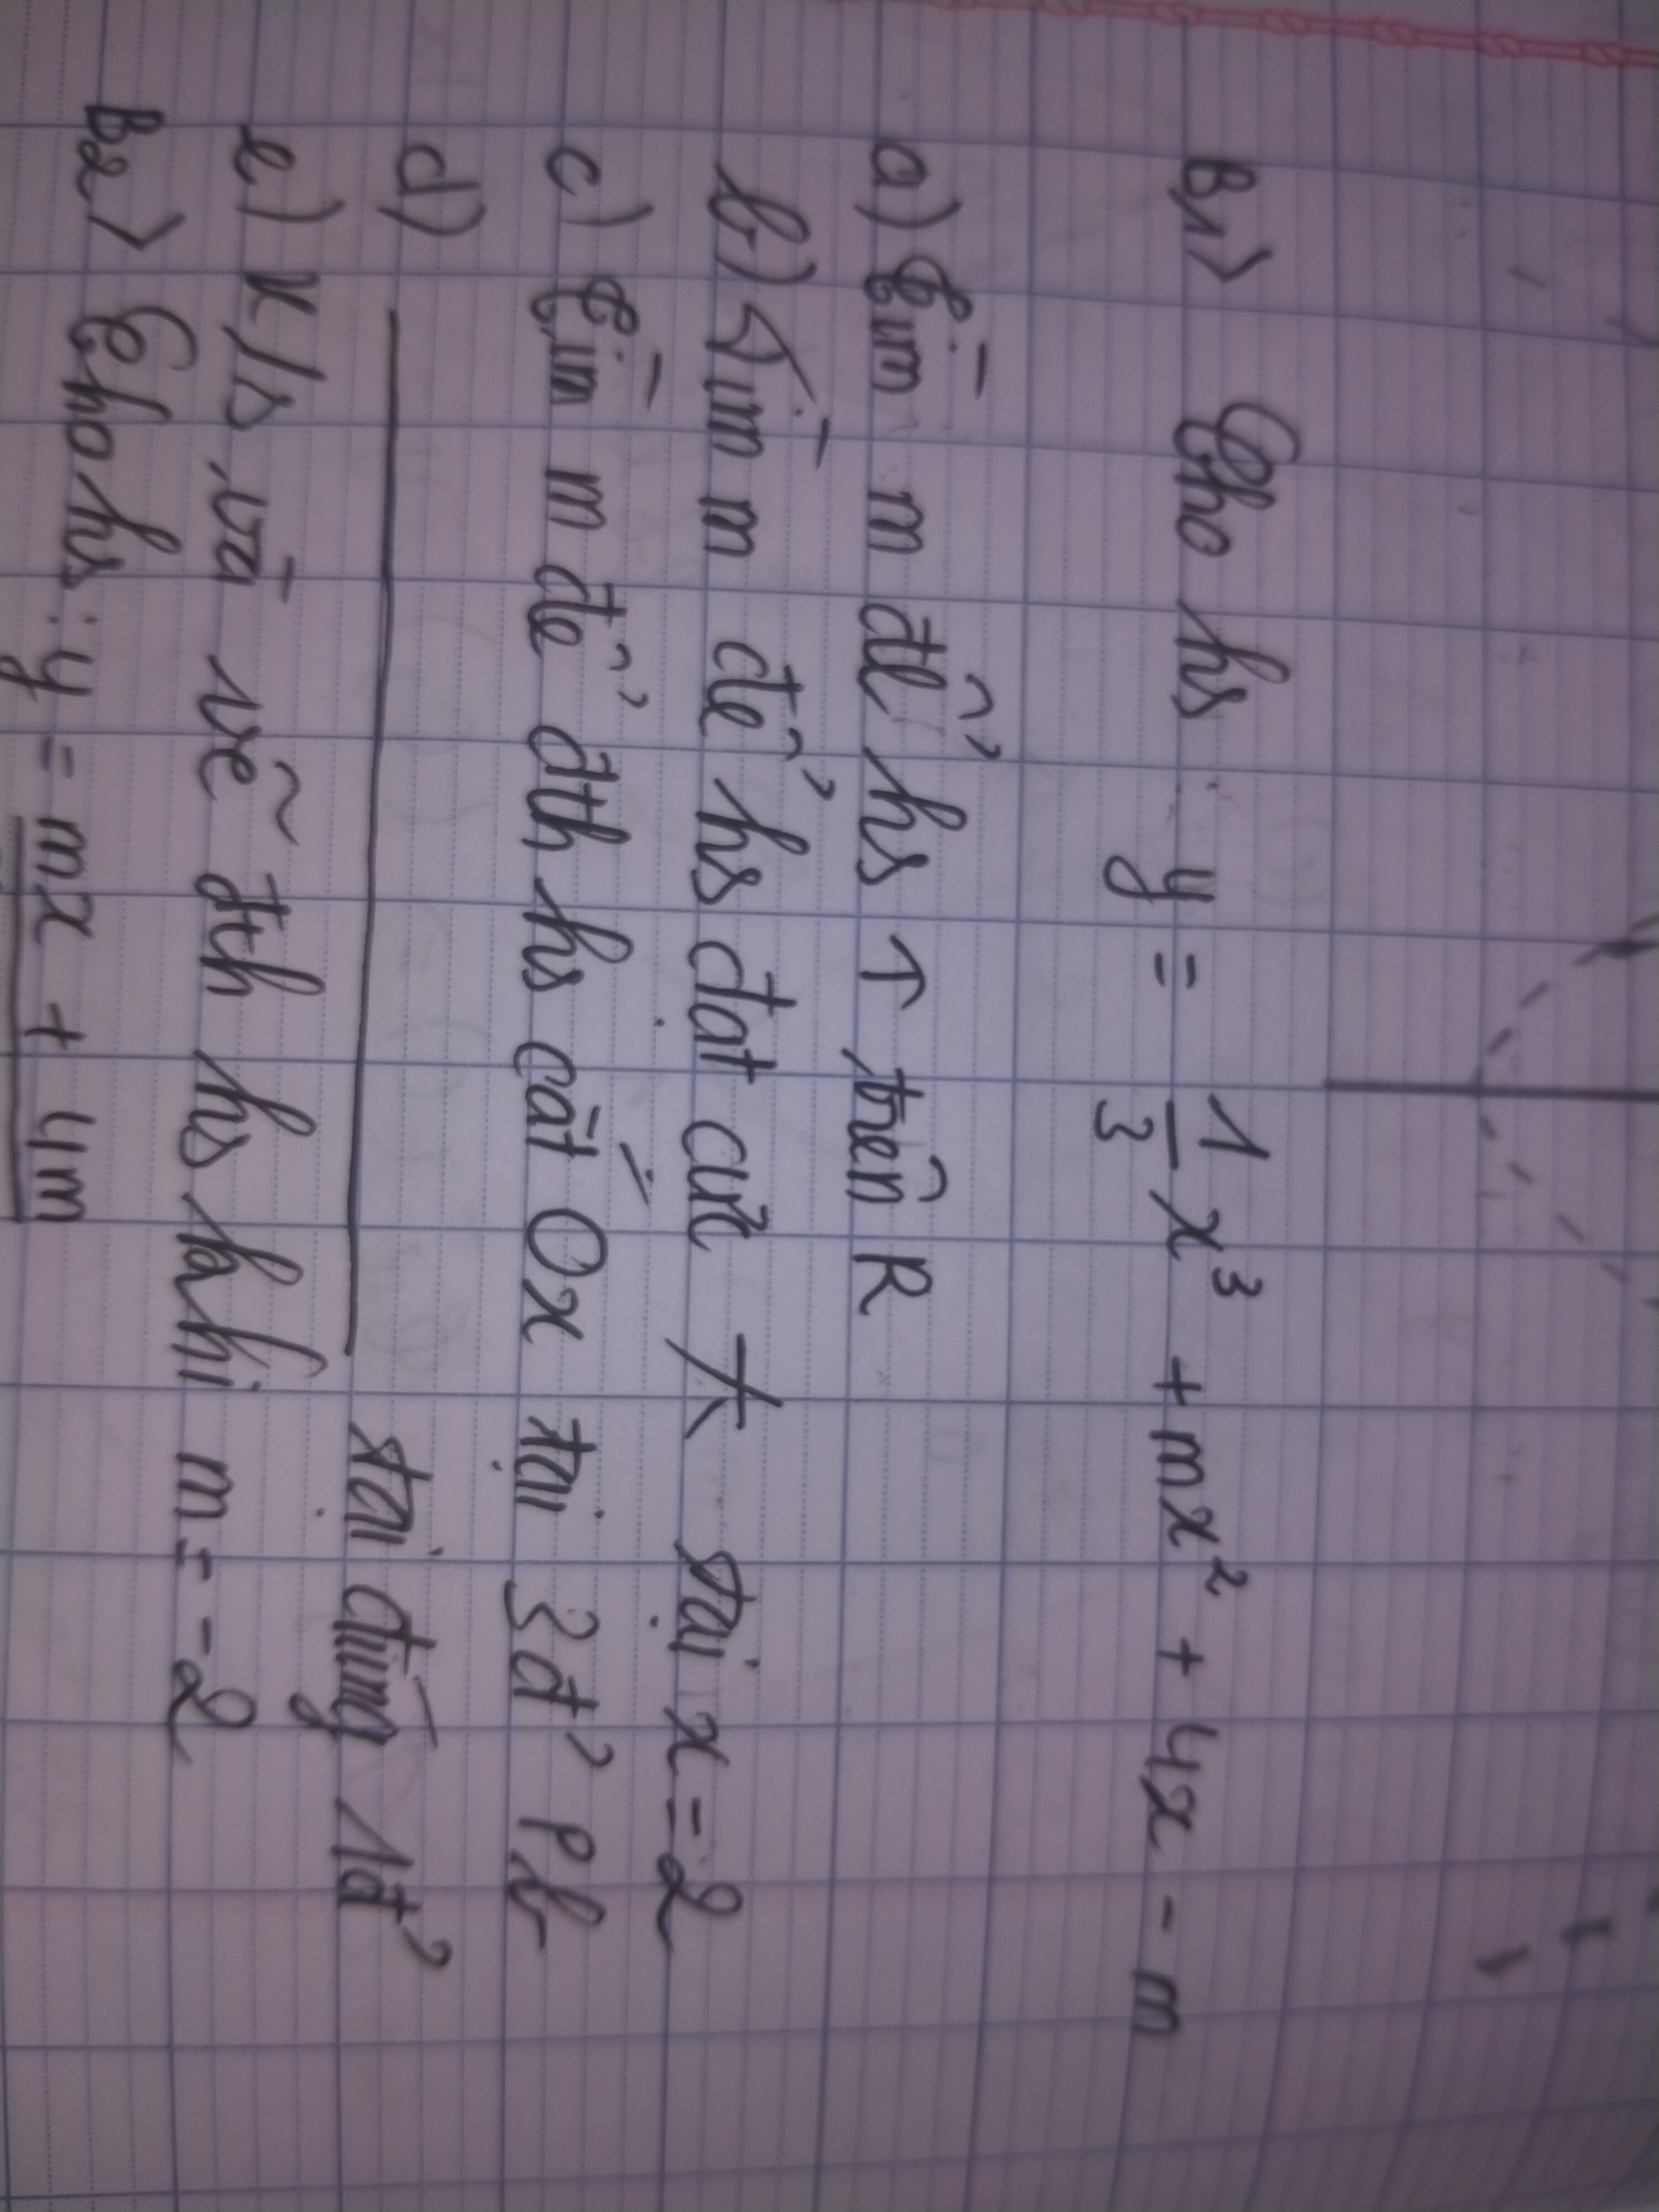 B1> Cho hs y = 1/3 x³ + mx² + 4x - m
a) Tìm m để hs ↑ trên R
b) Tìm m để hs đạt cực tại x = 2
c) Tìm m để đth hs cắt Ox tại 3đ' Pb
d) ——— tại đúng 1đ'
e) K/s và vẽ đth hs khi m = -2
B2> Cho hs: y = mx + 4m